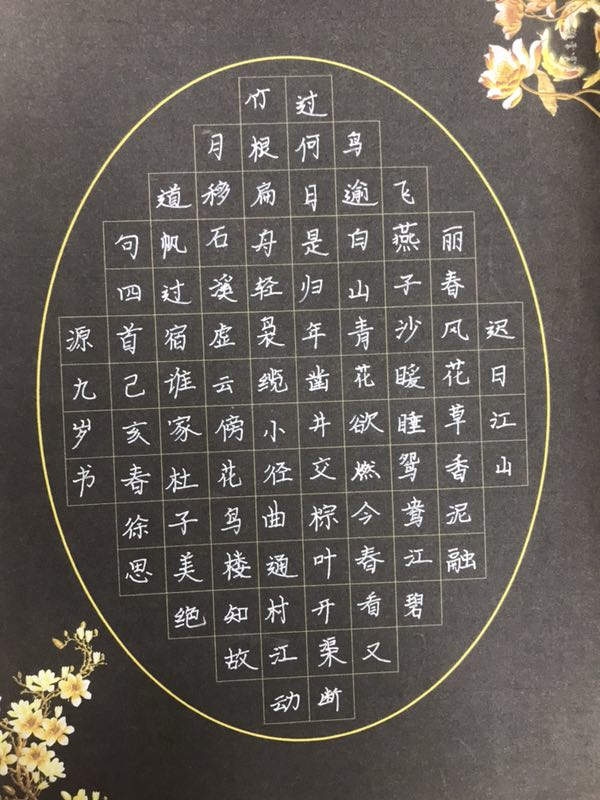 迟日江山
丽春风花草香泥融
飞燕子沙暖睡鸳鸯江碧
鸟逾白山青花欲燃今春看又
过何日是归年凿井交棕叶开渠断
竹根扁舟轻袅缆小径曲通村江动
月移石溪虚云傍花鸟楼知故
道帆过宿谁家杜子美绝
句四首己亥春徐思
源九岁书